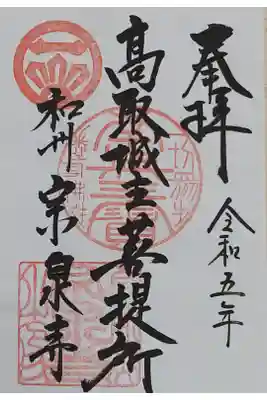 奉拝
令和五年
高取城主菩提所
和州 宗泉寺